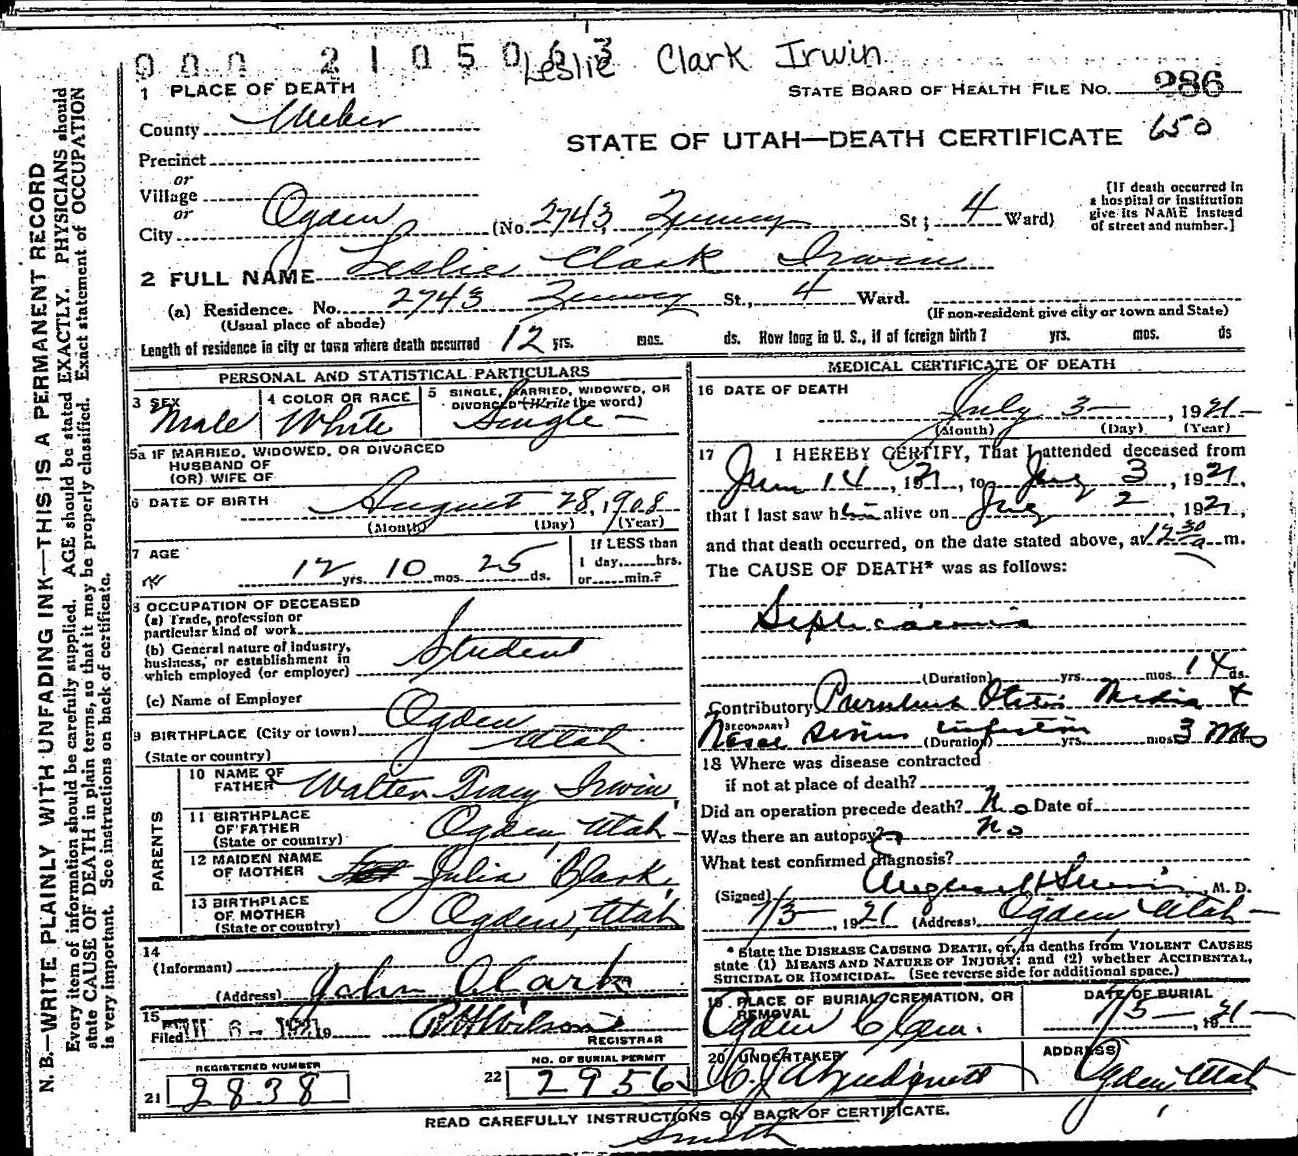 000 2105063 Leslie Clark Irwin
1 PLACE OF DEATH
STATE BOARD OF HEALTH FILE NO. 286
County Weber
STATE OF UTAH—DEATH CERTIFICATE 650
Precinct
or
Village
or
City Ogden (No. 2743 Quincy St; 4 Ward)
[If death occurred in
a hospital or institution
give its NAME instead
of street and number.]
2 FULL NAME Leslie Clark Irwin
(a) Residence. No. 2743 Quincy St., 4 Ward.
(Usual place of abode)
(If non-resident give city or town and State)
Length of residence in city or town where death occurred 12 yrs. mos. ds. How long in U. S., if of foreign birth? yrs. mos. ds
PERSONAL AND STATISTICAL PARTICULARS
3 SEX
Male
4 COLOR OR RACE
White
5 SINGLE, MARRIED, WIDOWED, OR
DIVORCED (Write the word)
Single
5a IF MARRIED, WIDOWED, OR DIVORCED
HUSBAND OF
(OR) WIFE OF
6 DATE OF BIRTH August 28, 1908
(Month) (Day) (Year)
7 AGE
12 yrs. 10 mos. 25 ds.
If LESS than
1 day......hrs.
or......min.?
8 OCCUPATION OF DECEASED
(a) Trade, profession or
particular kind of work
(b) General nature of industry,
business, or establishment in
which employed (or employer)
Student
(c) Name of Employer
9 BIRTHPLACE (City or town) Ogden
(State or country) Utah
PARENTS
10 NAME OF
FATHER Walter Tracy Irwin
11 BIRTHPLACE
OF FATHER
(State or country) Ogden, Utah
12 MAIDEN NAME
OF MOTHER Julia Clark
13 BIRTHPLACE
OF MOTHER
(State or country) Ogden, Utah
14
(Informant) John Clark
(Address)
15
Filed 6- 1921 Wilson
REGISTRAR
REGISTERED NUMBER
21 2838
NO. OF BURIAL PERMIT
22 2956
MEDICAL CERTIFICATE OF DEATH
16 DATE OF DEATH
July 3 , 1921
(Month) (Day) (Year)
17 I HEREBY CERTIFY, That I attended deceased from
June 14, 1921, to July 3, 1921,
that I last saw him alive on July 2, 1921,
and that death occurred, on the date stated above, at 12 30 a m.
The CAUSE OF DEATH* was as follows:
Septicaemia
(Duration) yrs. mos. 14 ds.
Contributory Purulent Otitis Media +
(SECONDARY)
Nasal Sinus infection
(Duration) yrs. mos 3 mos
18 Where was disease contracted
if not at place of death?
Did an operation precede death? No Date of
Was there an autopsy? No
What test confirmed diagnosis?
(Signed) , M. D.
7/3 , 1921 (Address) Ogden Utah
* State the DISEASE CAUSING DEATH, or, in deaths from VIOLENT CAUSES
state (1) MEANS AND NATURE OF INJURY; and (2) whether ACCIDENTAL,
SUICIDAL OR HOMICIDAL. (See reverse side for additional space.)
19 PLACE OF BURIAL, CREMATION, OR
REMOVAL
Ogden C Cem.
DATE OF BURIAL
7/5 , 1921
20 UNDERTAKER
ADDRESS
Ogden, Utah
READ CAREFULLY INSTRUCTIONS ON BACK OF CERTIFICATE.
Smith
N. B.—WRITE PLAINLY WITH UNFADING INK—THIS IS A PERMANENT RECORD
Every item of information should be carefully supplied. AGE should be stated EXACTLY. PHYSICIANS should
state CAUSE OF DEATH in plain terms, so that it may be properly classified. Exact statement of OCCUPATION
is very important. See instructions on back of certificate.